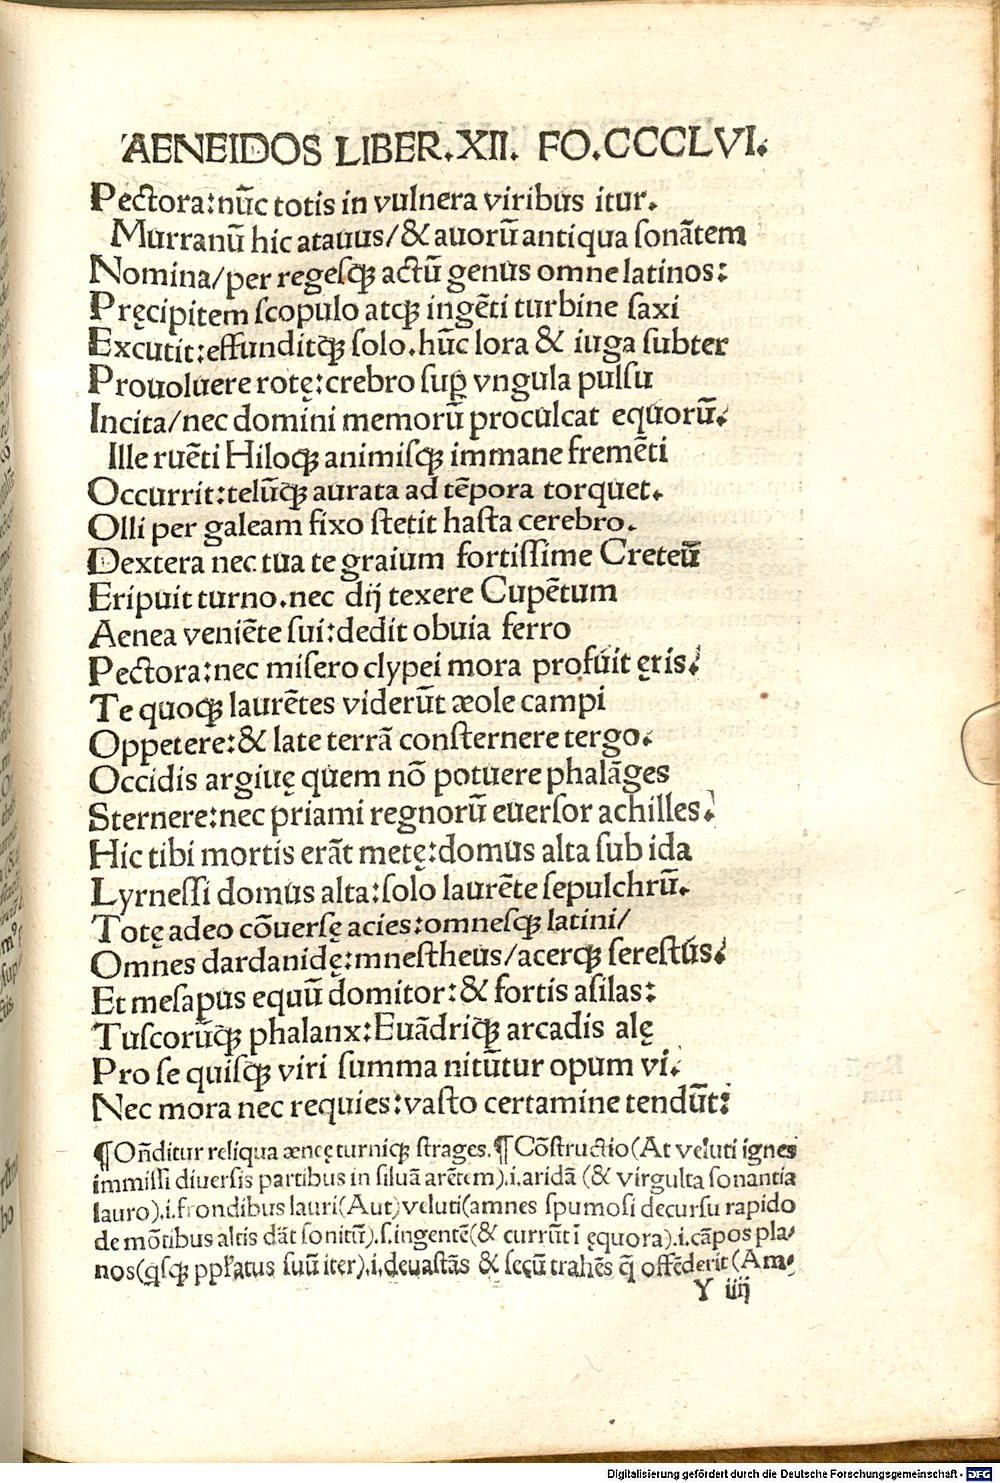 AENEIDOS LIBER.XII. FO.CCCLVI.
Pectora:nũc totis in vulnera viribus itur.
Murranũ hic atauus/& auorũ antiqua ſonãtem
Nomina/per regeſqꝫ actũ genus omne latinos:
Pręcipitem ſcopulo atqꝫ ingẽti turbine ſaxi
Excutit:effunditqꝫ ſolo.hũc lora & iuga ſubter
Prouoluere rotę:crebro ſuꝑ vngula pulſu
Incita/nec domini memorũ proculcat equorũ.
Ille ruẽti Hiloqꝫ animiſqꝫ immane fremẽti
Occurrit:telũqꝫ aurata ad tẽpora torquet.
Olli per galeam fixo ſtetit haſta cerebro.
Dextera nec tua te graium fortiſſime Creteũ
Eripuit turno.nec dij texere Cupẽtum
Aenea veniẽte ſui:dedit obuia ferro
Pectora:nec miſero clypei mora profuit ęris.
Te quoqꝫ laurẽtes viderũt æole campi
Oppetere:& late terrã conſternere tergo.
Occidis argiuę quem nõ potuere phalãges
Sternere:nec priami regnorũ euerſor achilles.
Hic tibi mortis erãt metę:domus alta ſub ida
Lyrneſſi domus alta:ſolo laurẽte ſepulchrũ.
Totę adeo cõuerſę acies:omneſqꝫ latini/
Omnes dardanidę:mneſtheus/acerqꝫ ſereſtus.
Et meſapus equũ domitor:& fortis aſilas:
Tuſcorũqꝫ phalanx:Euãdriqꝫ arcadis alę
Pro ſe quiſqꝫ viri ſumma nitũtur opum vi.
Nec mora nec requies:vaſto certamine tendũt:
¶Oñditur reliqua æncę turniqꝫ ſtrages.¶Cõſtructio(At veluti ignes
immiſſi diuerſis partibus in ſiluã arẽtem).i.aridã (& virgulta ſonantia
lauro).i.frondibus lauri(Aut)veluti(amnes ſpumoſi decurſu rapido
de mõtibus altis dãt ſonitũ).ſ.ingentẽ(& currũt ĩ ęquora).i.cãpos pla-
nos(qſqꝫ ppřatus ſuũ iter).i.deuaſtãs & ſecũ trahẽs q̃ offẽderit(Am-
Y iiij
Digitalisierung gefördert durch die Deutsche Forschungsgemeinschaft - DFG